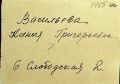 1485 а
Васильева
Ксения Григорьевна
6 Слободская 2.